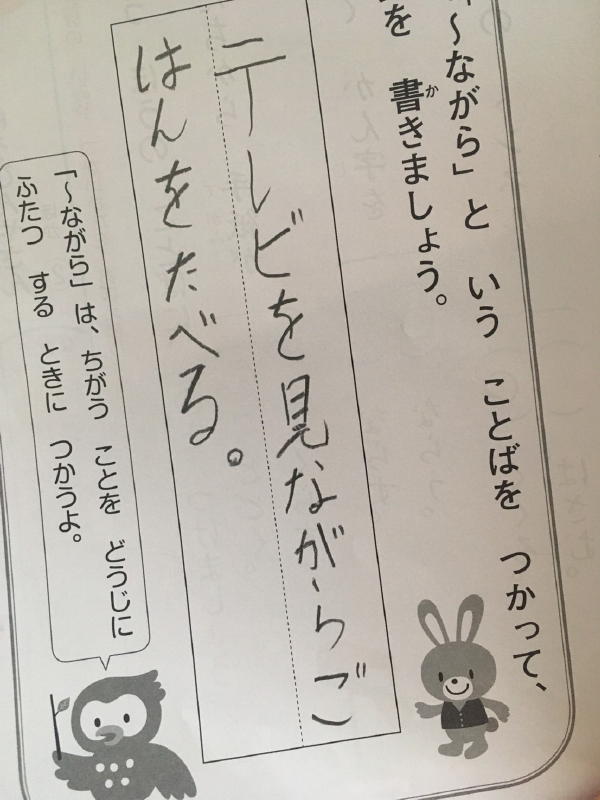 「～ながら」と いう ことばを つかって、
を 書きましょう。
か
テレビを見ながらご
はんをたべる。
「～ながら」は、ちがう ことを どうじに
ふたつ する ときに つかうよ。